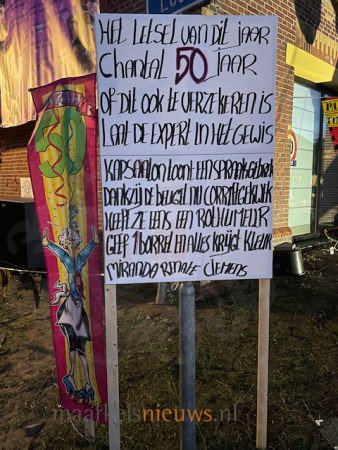 HET LETSEL VAN DIT JAAR
CHANTAL 50 JAAR
OF DIT OOK TE VERZEKEREN IS
LAAT DE EXPERT IN HET GEWIS
KAPSALON LOONT EEN SPRAAKGEBREK
DANKZIJ DE BEUGEL NU CORRECTE BEK
HEEFT ZE EENS EEN ROTHUMEUR
GEEF 1 BORREL EN ALLES KRIJGT KLEUR
MIRANDA RENATE CLEMENS
50
maarkelsnieuws.nl